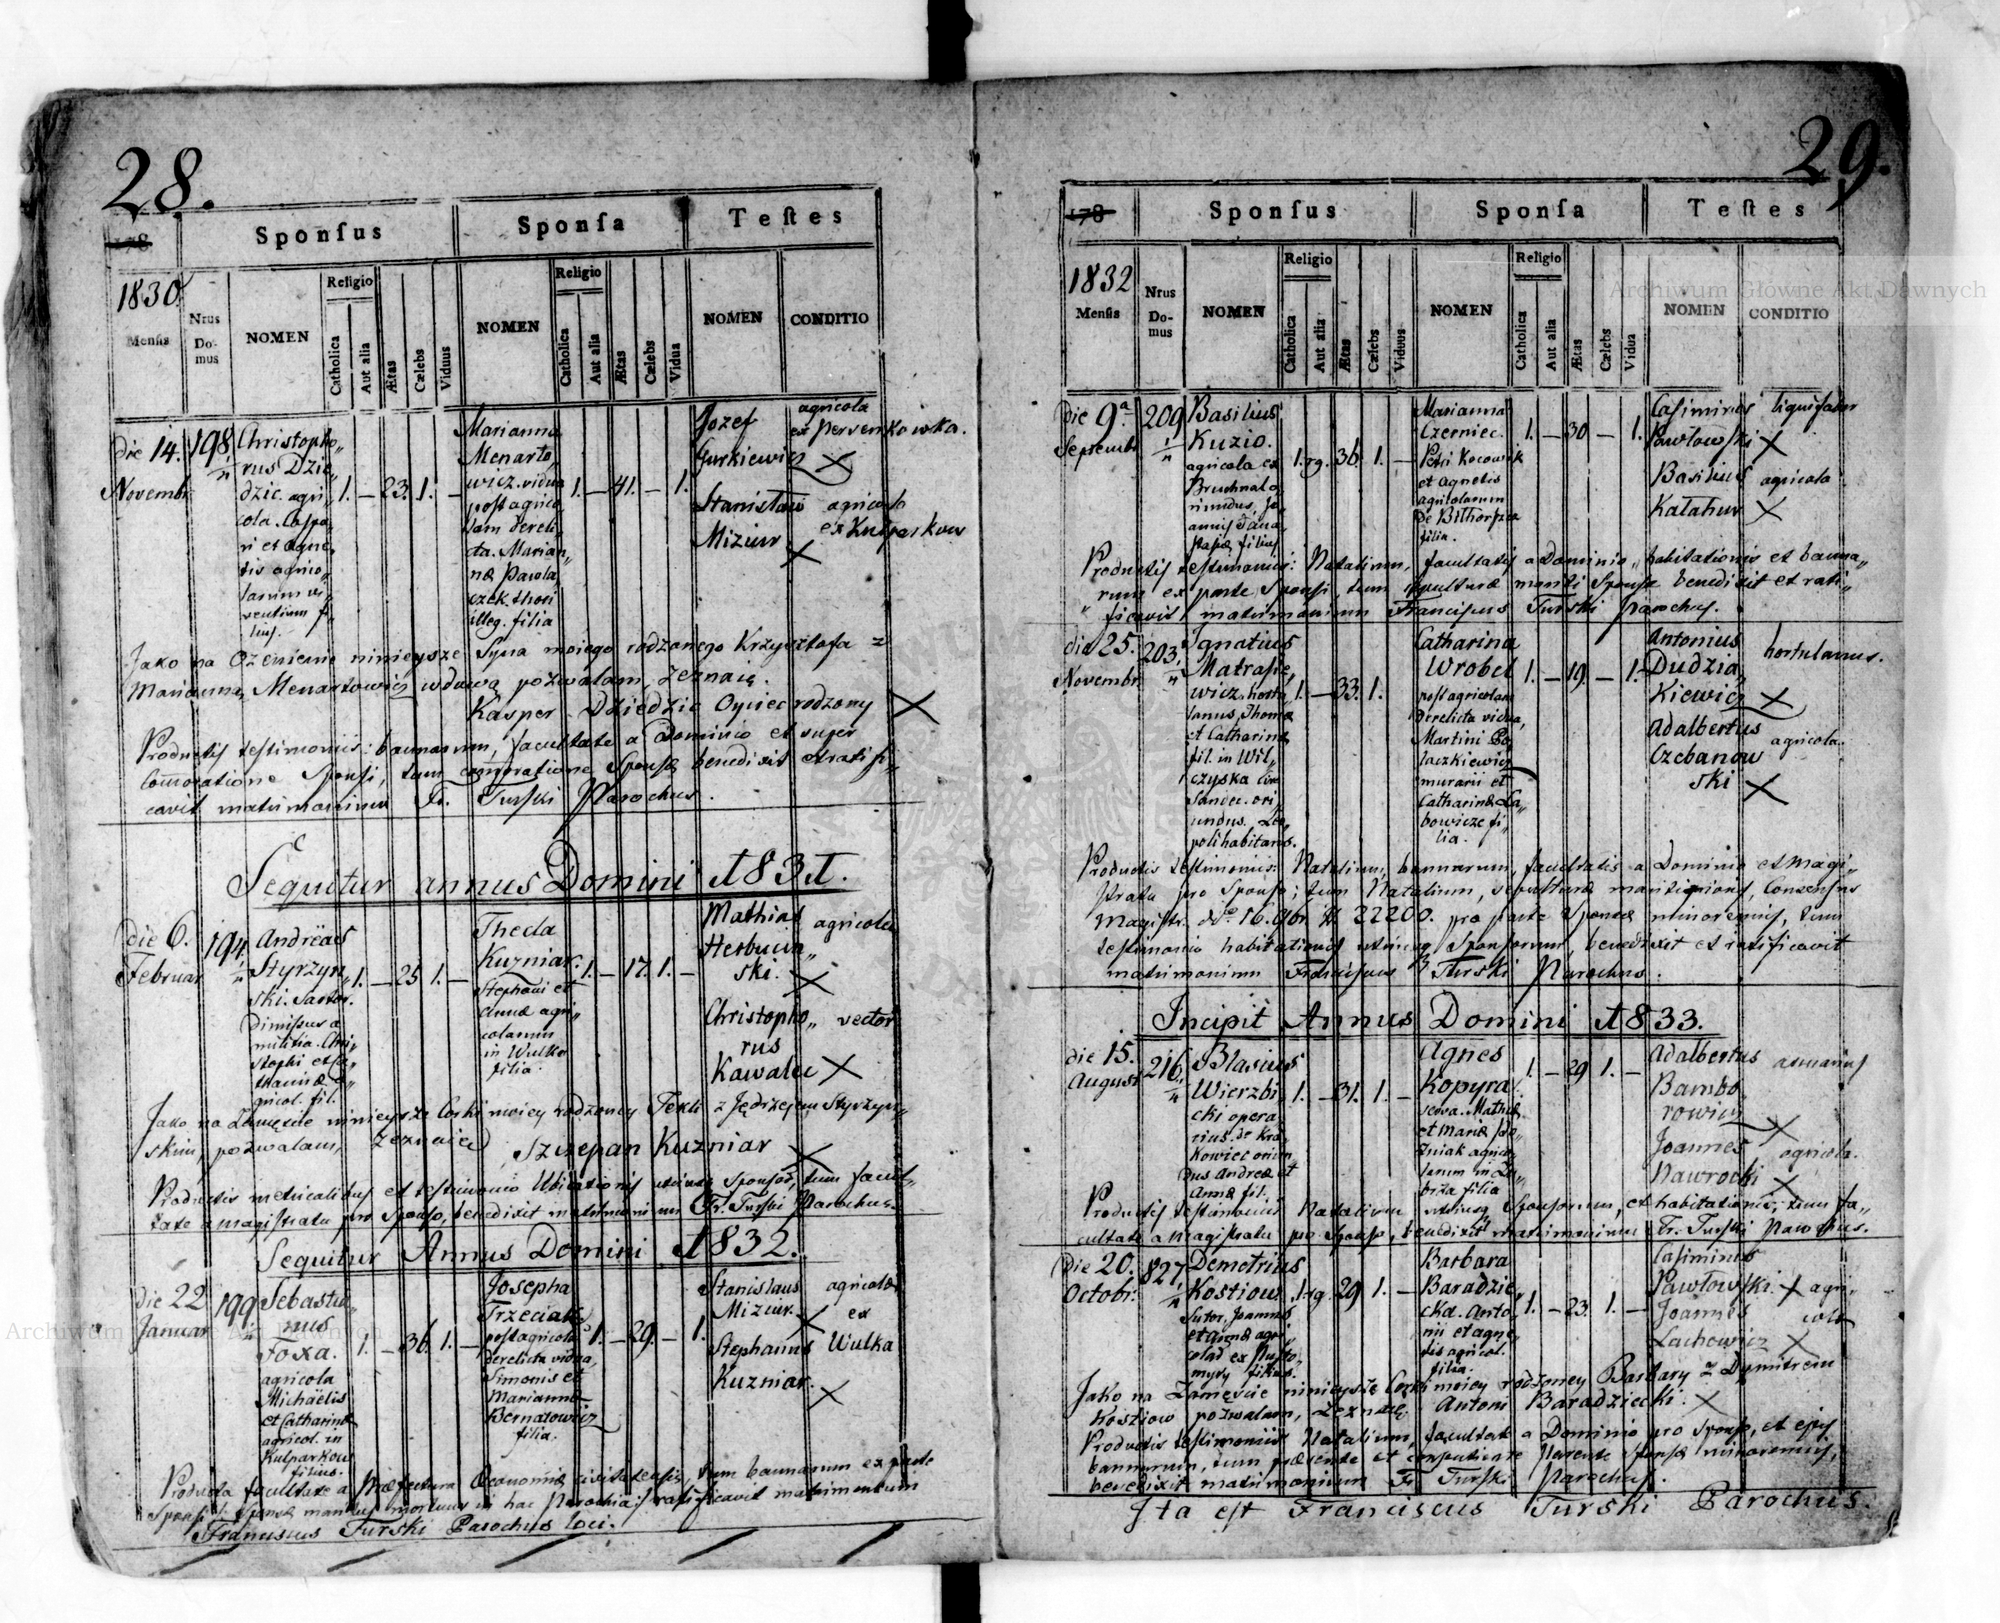 28.
Sponſus Sponſa Teſtes
178
1830.
Menſis
Nrus Domus
NOMEN
Religio
Catholica
Aut alia
Ætas
Cælebs
Viduus
NOMEN
Religio
Catholica
Aut alia
Ætas
Cælebs
Vidua
NOMEN
CONDITIO
die 14.
Novembr.
198.
Christopho„
rus Dzie„
dzic. agri„
cola. Caspa„
ri et Agne„
tis agrico„
larum vi„
ventium fi„
lius.
1. — 23. 1. —
Marianna
Menarto„
wicz. vidua
post agrico„
lam dereli„
cta. Marian„
næ Pawla
czek thori
illeg. filia
1. — 41. — 1.
Jozef
Gurkiewicz
agricola
ex Persenkowka.
Stanisław
Miziur
agricola
ex Kulparkow
Jako na Ożenienie ninieysze Syna moiego rodzonego Krzysztofa z
Marianną Menartowicz wdową pozwalam, zeznaię.
Kasper Dziedzic Oyciec rodzony
Productis testimoniis: bannorum, facultate a Dominio et super
Comoratione Sponsi, tum comoratione Sponsæ benedixit et ratifi„
cavit matrimonium Fr. Turski Parochus.
Sequitur annus Domini 1831.
die 6.
Februar
194.
Andrëas
Styrzyn„
ski. Sartor.
Dimissus a
militia. Chri„
stophi et Ca„
tharinæ a„
gricol. fil.
1. — 25 1. —
Thecla
Kuzniar.
Stephani et
Annæ agri„
colarum
in Wulka
filia.
1. — 17. 1. —
Mathias
Herbuciń„
ski.
agricola
Christopho„
rus
Kawalec
vector
Jako na Zamęście ninieysze Corki moiey rodzoney Tekli z Jędrzejem Styrzyn„
skim, pozwalam, zeznaię
Szczepan Kuzniar
Productis metricalibus et testimonio Ubicationis utriusq Sponsor, tum facul„
tate a magistratu pro Sponso, benedixit matrimonium Fr. Turski Parochus.
Sequitur Annus Domini 1832.
die 22
Januar
199.
Sebastia„
nus
Foxa.
agricola
Michaëlis
et Catharinæ
agricol. in
Kulparkow
filius.
1. — 36. 1. —
Josepha
Trzeciak.
post agricola
derelicta vidua,
Simonis et
Marianna
Bernatowicz
filia.
1. — 29. — 1.
Stanislaus
Miziur.
Stephanus
Kuzniar.
agricolæ
ex
Wulka
Producta facultate a Præfectura Oeconomiæ civitatensis, tum bannorum ex parte
Sponsi: Sponsæ maritus mortuus in hac Parochia, ratificavit matrimonium
Franciscus Turski Parochus loci.
29.
Sponſus Sponſa Teſtes
178
1832
Menſis
Nrus Domus
NOMEN
Religio
Catholica
Aut alia
Ætas
Cælebs
Viduus
NOMEN
Religio
Catholica
Aut alia
Ætas
Cælebs
Vidua
NOMEN
CONDITIO
die 9ª
Septembr
209.
Basilius
Kuzio.
agricola ex
Bruchnal o„
riundus, Jo„
annis
filius
1. rg. 36. 1. —
Marianna
Czerniec.
Petri
et Agnetis
agricolarum
de
filia.
1. — 30 — 1.
Casimirus
Pawłowski
Basilius
Kałahur
agricola
Productis testimoniis: Natalium, facultatis a Dominio, habitationis et banno„
rum ex parte Sponsi, tum sepulturæ mariti Sponsæ benedixit et rati„
ficavit matrimonium Franciscus Turski Parochus.
die 25.
Novembr.
203.
Ignatius
Matrasie„
wicz. hortu
lanus, Thomæ
et Catharinæ
fil. in Wil„
czyska Cir.
Sandec. ori„
undus. Leo„
poli habitans.
1. — 33. 1.
Catharina
Wrobel
post agricolam
derelicta vidua,
Martini Po„
laczkiewicz
murarii et
Catharinæ La„
bowicze fi„
lia.
1. — 19. — 1.
Antonius
Dudzia„
kiewicz
hortulanus.
Adalbertus
Czebanow
ski
agricola.
Productis testimoniis: Natalium, bannorum, facultatis a Dominio et Magi„
stratu pro Sponso; tum Natalium, sepulturæ mariti prioris, Consensus
Magistr. dde 16. 9br. N 22200. pro parte Sponsæ minorennis, tum
testimonio habitationis utriusq Sponsorum, benedixit et ratificavit
matrimonium Franciscus Turski Parochus.
Incipit Annus Domini 1833.
die 15.
August
216.
Blasius
Wierzbi„
cki opera
rius. de Kra„
kowiec oriun„
dus Andreæ et
Annæ fil.
1. — 31. 1. —
Agnes
Kopyra.
serva. Mathiæ
et Mariæ
agrico„
larum in
filia
1. — 29 1. —
Adalbertus
Bambo„
rowicz
Joannes
Nawrocki
agricola.
Productis testimoniis Natalium utriusq Sponsorum, et habitationis; tum fa„
cultate a magistratu pro Sponso, benedixit matrimonium Fr. Turski Parochus.
die 20.
Octobr.
827.
Demetrius
Kostiow.
Sutor. Joannis
et Annæ agri„
colar ex Pusto„
myty filius.
1. rg. 29 1. —
Barbara
Baradzie„
cka. Anto„
nii et Agne„
tis agricol.
filia.
1. — 23. 1. —
Casimirus
Pawłowski.
Joannes
Lachowicz
agri„
colæ
Jako na Zamęście ninieysze Corki moiey rodzoney Barbary z Dymitrem
Kostiow pozwalam, zeznaię. Antoni Baradziecki.
Productis testimoniis Natalium, facultate a Dominio pro Sponso, et ejus
bannorum, tum præsente et consentiente Parente Sponsæ minorennis,
benedixit matrimonium Fr. Turski Parochus.
Ita est Franciscus Turski Parochus.
Archiwum Główne Akt Dawnych
Archiwum Główne Akt Dawnych